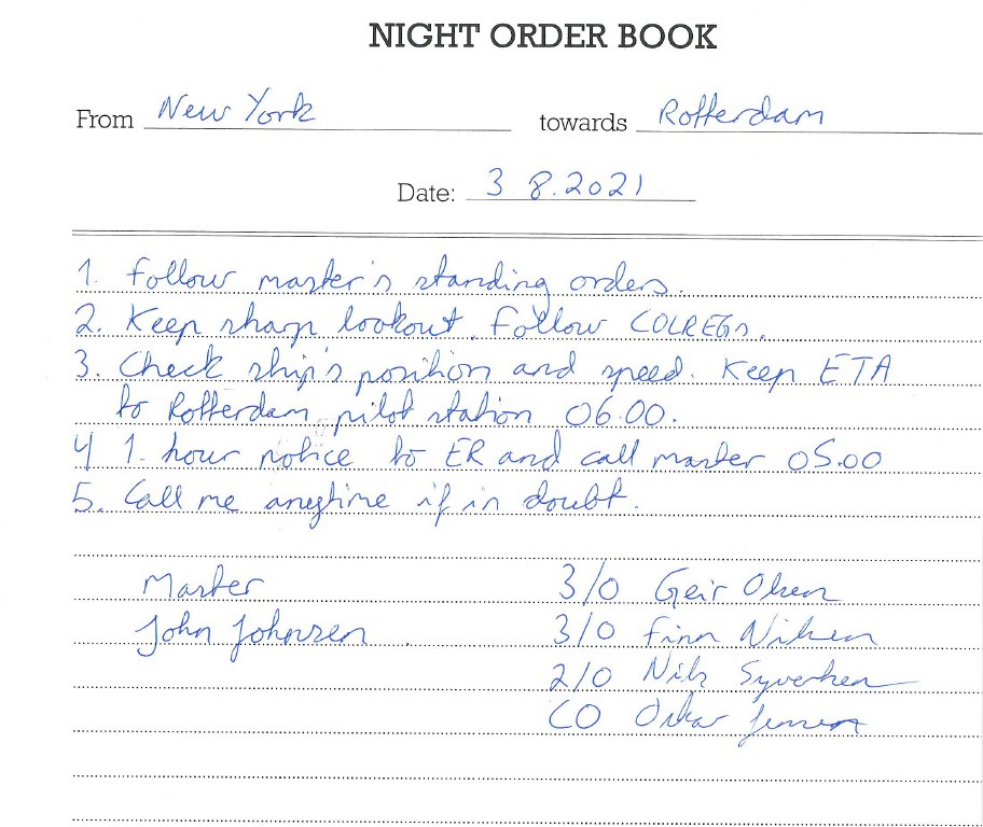 NIGHT ORDER BOOK
From New York towards Rotterdam
Date: 3 8.2021
1. Follow master's standing orders.
2. Keep sharp lookout. Follow COLREGs.
3. Check ship's position and speed. Keep ETA
to Rotterdam pilot station 06.00.
4 1. hour notice to ER and call master 05.00
5. Call me anytime if in doubt.
Master 3/O Geir Olsen
John Johnsen. 3/O Finn Nilsen
2/O Nils Syvertsen
CO Oskar Jensen